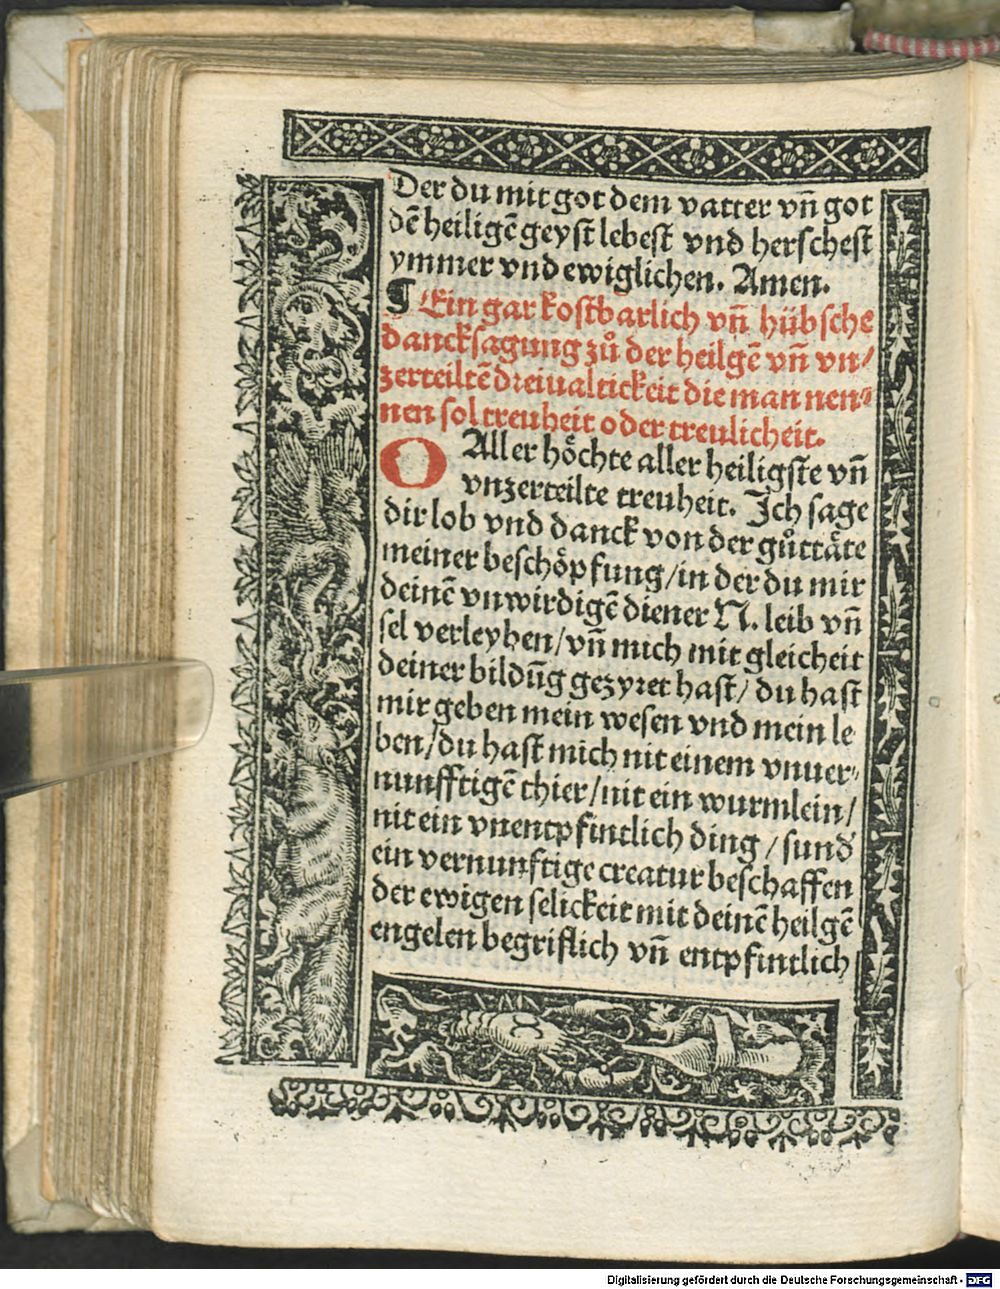 Der du mit got dem vatter vn̄ got
dē heiligē geyst lebest vnd herschest
ymmer vnd ewiglichen. Amen.
¶ Ein gar kostbarlich vn̄ hübsche
dancksagung zů der heilgē vn̄ vn/
zerteiltē dreiualtickeit die man nen⸗
nen sol treuheit oder treulicheit.
O Aller höchte aller heiligste vn̄
vnzerteilte treuheit. Ich sage
dir lob vnd danck von der gůttäte
meiner beschöpfung/in der du mir
deinē vnwirdigē diener N. leib vn̄
sel verleyhen/vn̄ mich mit gleicheit
deiner bildūg gezyret hast/ du hast
mir geben mein wesen vnd mein le
ben/du hast mich nit einem vnuer⸗
nunfftigē thier/nit ein wurmlein/
nit ein vnentpfintlich ding/sund'
ein vernunftige creatur beschaffen
der ewigen selickeit mit deinē heilgē
engelen begriflich vn̄ entpfintlich
Digitalisierung gefördert durch die Deutsche Forschungsgemeinschaft - DFG